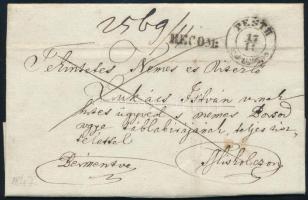 2569
RECOM:
PESTH
17
Tekintetes Nemes és Vitézlő
Lukács István
ügyvéd s nemes Borsod
táblabirájának, teljes tisz
telettel
Bérmentve
Miskolczon
1847